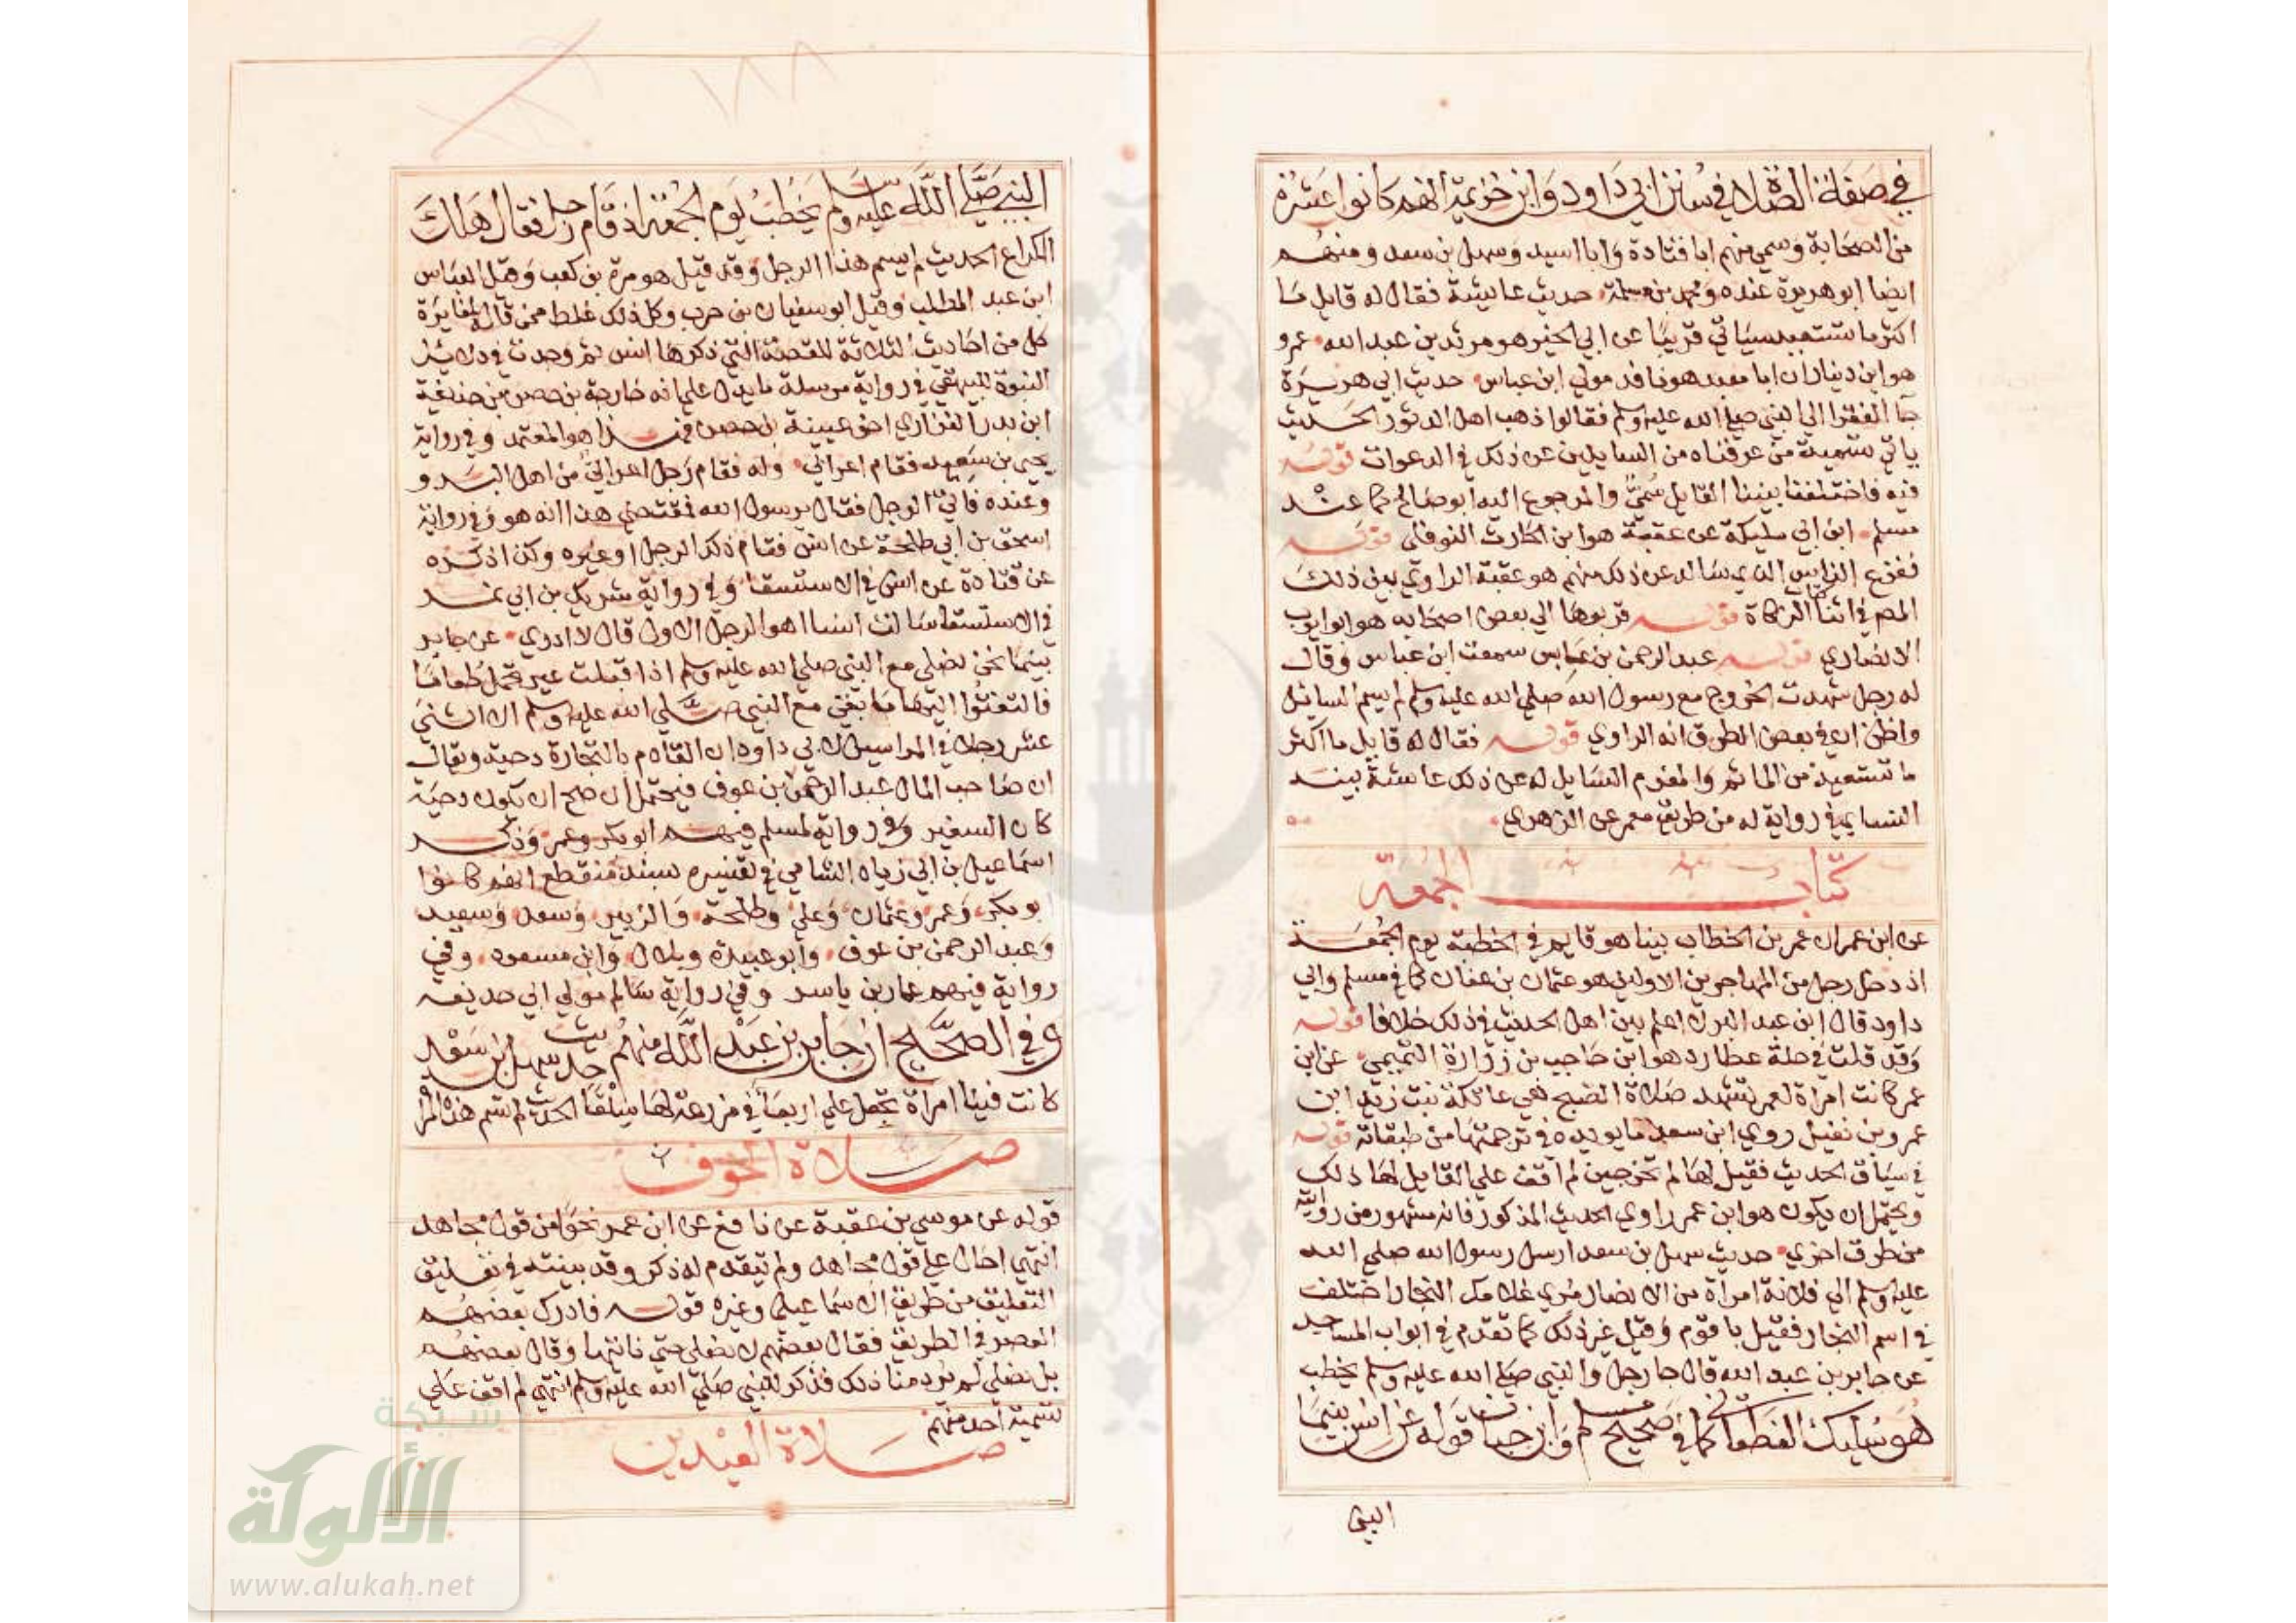 في صفة الصلاة في سنن ابي داود وابن خزيمة انهم كانوا عشرة
من الصحابة وسمي منهم ابا قتادة وابا اسيد وسهل بن سعد ومنهم
ايضا ابو هريرة عنده ومحمد بن مسلمة حديث عايشة فقال له قايل ما
اكثر ما تستعيد سياتي قريبا عن ابي الخير هو مرثد بن عبد الله عمرو
هو ابن دينار ان ابا معبد هو نافد مولي ابن عباس حديث ابي هريرة
جا الفقرا الي النبي صلي الله عليه وسلم فقالوا ذهب اهل الدثور الحديث
ياتي تسمية من عرفناه من السايلين عن ذلك في الدعوات قوله
فيه فاختلفنا بيننا القايل سمي والمرجوع اليه ابو صالح كما عند
مسلم ابن ابي مليكة عن عقبة هو ابن الحارث النوفلي قوله
ففزع الناس الذي ساله عن ذلك منهم هو عقبة الراوي بين ذلك
المص في اثنا الزكاة قوله قربوها الي بعض اصحابه هو ابو ايوب
الانصاري قوله عبد الرحمن بن عابس سمعت ابن عباس وقال
له رجل شهدت الخروج مع رسول الله صلي الله عليه وسلم لم يسم السائل
واظن ان في بعض الطرق انه الراوي قوله فقال له قايل ما اكثر
ما تستعيذ من الماثم والمغرم السايل له عن ذلك عائشة بينه
النسايي في رواية له من طريق معمر عن الزهري
كتاب الجمعة
عن ابن عمر ان عمر بن الخطاب بينا هو قايم في الخطبة يوم الجمعة
اذ دخل رجل من المهاجرين الاولين هو عثمان بن عفان كما في مسلم وابي
داود قال ابن عبد البر لا اعلم بين اهل الحديث في ذلك خلافا قوله
وقد قلت في حلة عطارد هو ابن حاجب بن زرارة التميمي عن ابن
عمر كانت امراة لعمر تشهد صلاة الصبح هي عاتكة بنت زيد ابن
عمرو بن نفيل روي ابن سعد ما يويده في ترجمتها من طبقاته قوله
في سياق الحديث فقيل لها لم تخرجين لم اقف علي القايل لها ذلك
ويحتمل ان يكون هو ابن عمر راوي الحديث المذكور فانه مشهور من روايته
من طرق اخري حديث سهل بن سعد ارسل رسول الله صلي الله
عليه وسلم الي فلانة امراة من الانصار مري غلامك النجار اختلف
في اسم النجار فقيل باقوم وقيل غير ذلك كما تقدم في ابواب المساجد
عن جابر بن عبد الله قال جا رجل والنبي صلي الله عليه وسلم يخطب
هو سليك الغطفاني كما في صحيح مسلم وابن حبان قوله عن انس بينما
النبي
النبي صلي الله عليه وسلم يخطب يوم الجمعة اذ قام رجل فقال هلك
الكراع الحديث لم يسم هذا الرجل وقد قيل هو مرة بن كعب وقيل العباس
ابن عبد المطلب وقيل ابو سفيان بن حرب وكل ذلك غلط ممن قاله لمغايرة
كل من احاديث الثلاثة للقصة التي ذكرها انس ثم وجدت في دلايل
النبوة للبيهقي في رواية مرسلة ما يدل علي انه خارجة بن حصن بن حذيفة
ابن بدر الفزاري اخو عيينة بن حصن فهذا هو المعتمد وفي رواية
يحيي بن سعيد فقام اعرابي وله فقام رجل اعرابي من اهل البدو
وعنده فاتي الرجل فقال يرسول الله فمقتضي هذا انه هو وفي رواية
اسحق بن ابي طلحة عن انس فقام ذلك الرجل او غيره وكذا ذكره
عن قتادة عن انس في الاستسقا وفي رواية شريك بن ابي نمر
في الاستسقا سالت انسا اهو الرجل الاول قال لا ادري عن جابر
بينما نحن نصلي مع النبي صلي الله عليه وسلم اذ اقبلت عير تحمل طعاما
فالتفتوا اليها ما بقي مع النبي صلي الله عليه وسلم الا اثني
عشر رجلا في المراسيل لابي داود ان القادم بالتجارة دحية ويقال
ان صاحب المال عبد الرحمن بن عوف فيحتمل ان صح ان يكون دحية
كان السفير وفي رواية لمسلم فيهم ابو بكر وعمر وذكر
اسماعيل بن ابي زياد الشامي في تفسيره بسند منقطع انهم كانوا
ابو بكر وعمر وعثمان وعلي وطلحة والزبير وسعد وسعيد
وعبد الرحمن بن عوف وابو عبيدة وبلال وابن مسعود وفي
رواية فيهم عمار بن ياسر وفي رواية سالم مولي ابي حذيفة
وفي الصحيح ان جابر بن عبد الله منهم حديث سهل ابن سعد
كانت فينا امراة تجعل علي اربعا في مزرعة لها سلقا الحديث لم تسم هذه المراة
صلاة الخوف
قوله عن موسي بن عقبة عن نافع عن ابن عمر نحوا من قول مجاهد
انتهي احال علي قول مجاهد ولم يتقدم له ذكر وقد بينته في تغليق
التعليق من طريق الاسماعيلي وغيره قوله فادرك بعضهم
العصر في الطريق فقال بعضهم لا نصلي حتي ناتيها وقال بعضهم
بل نصلي لم يرد منا ذلك فذكر للنبي صلي الله عليه وسلم انتهي لم اقف علي
تسمية احد منهم
صلاة العيدين
١٨٨
شبكة
الألوكة
www.alukah.net